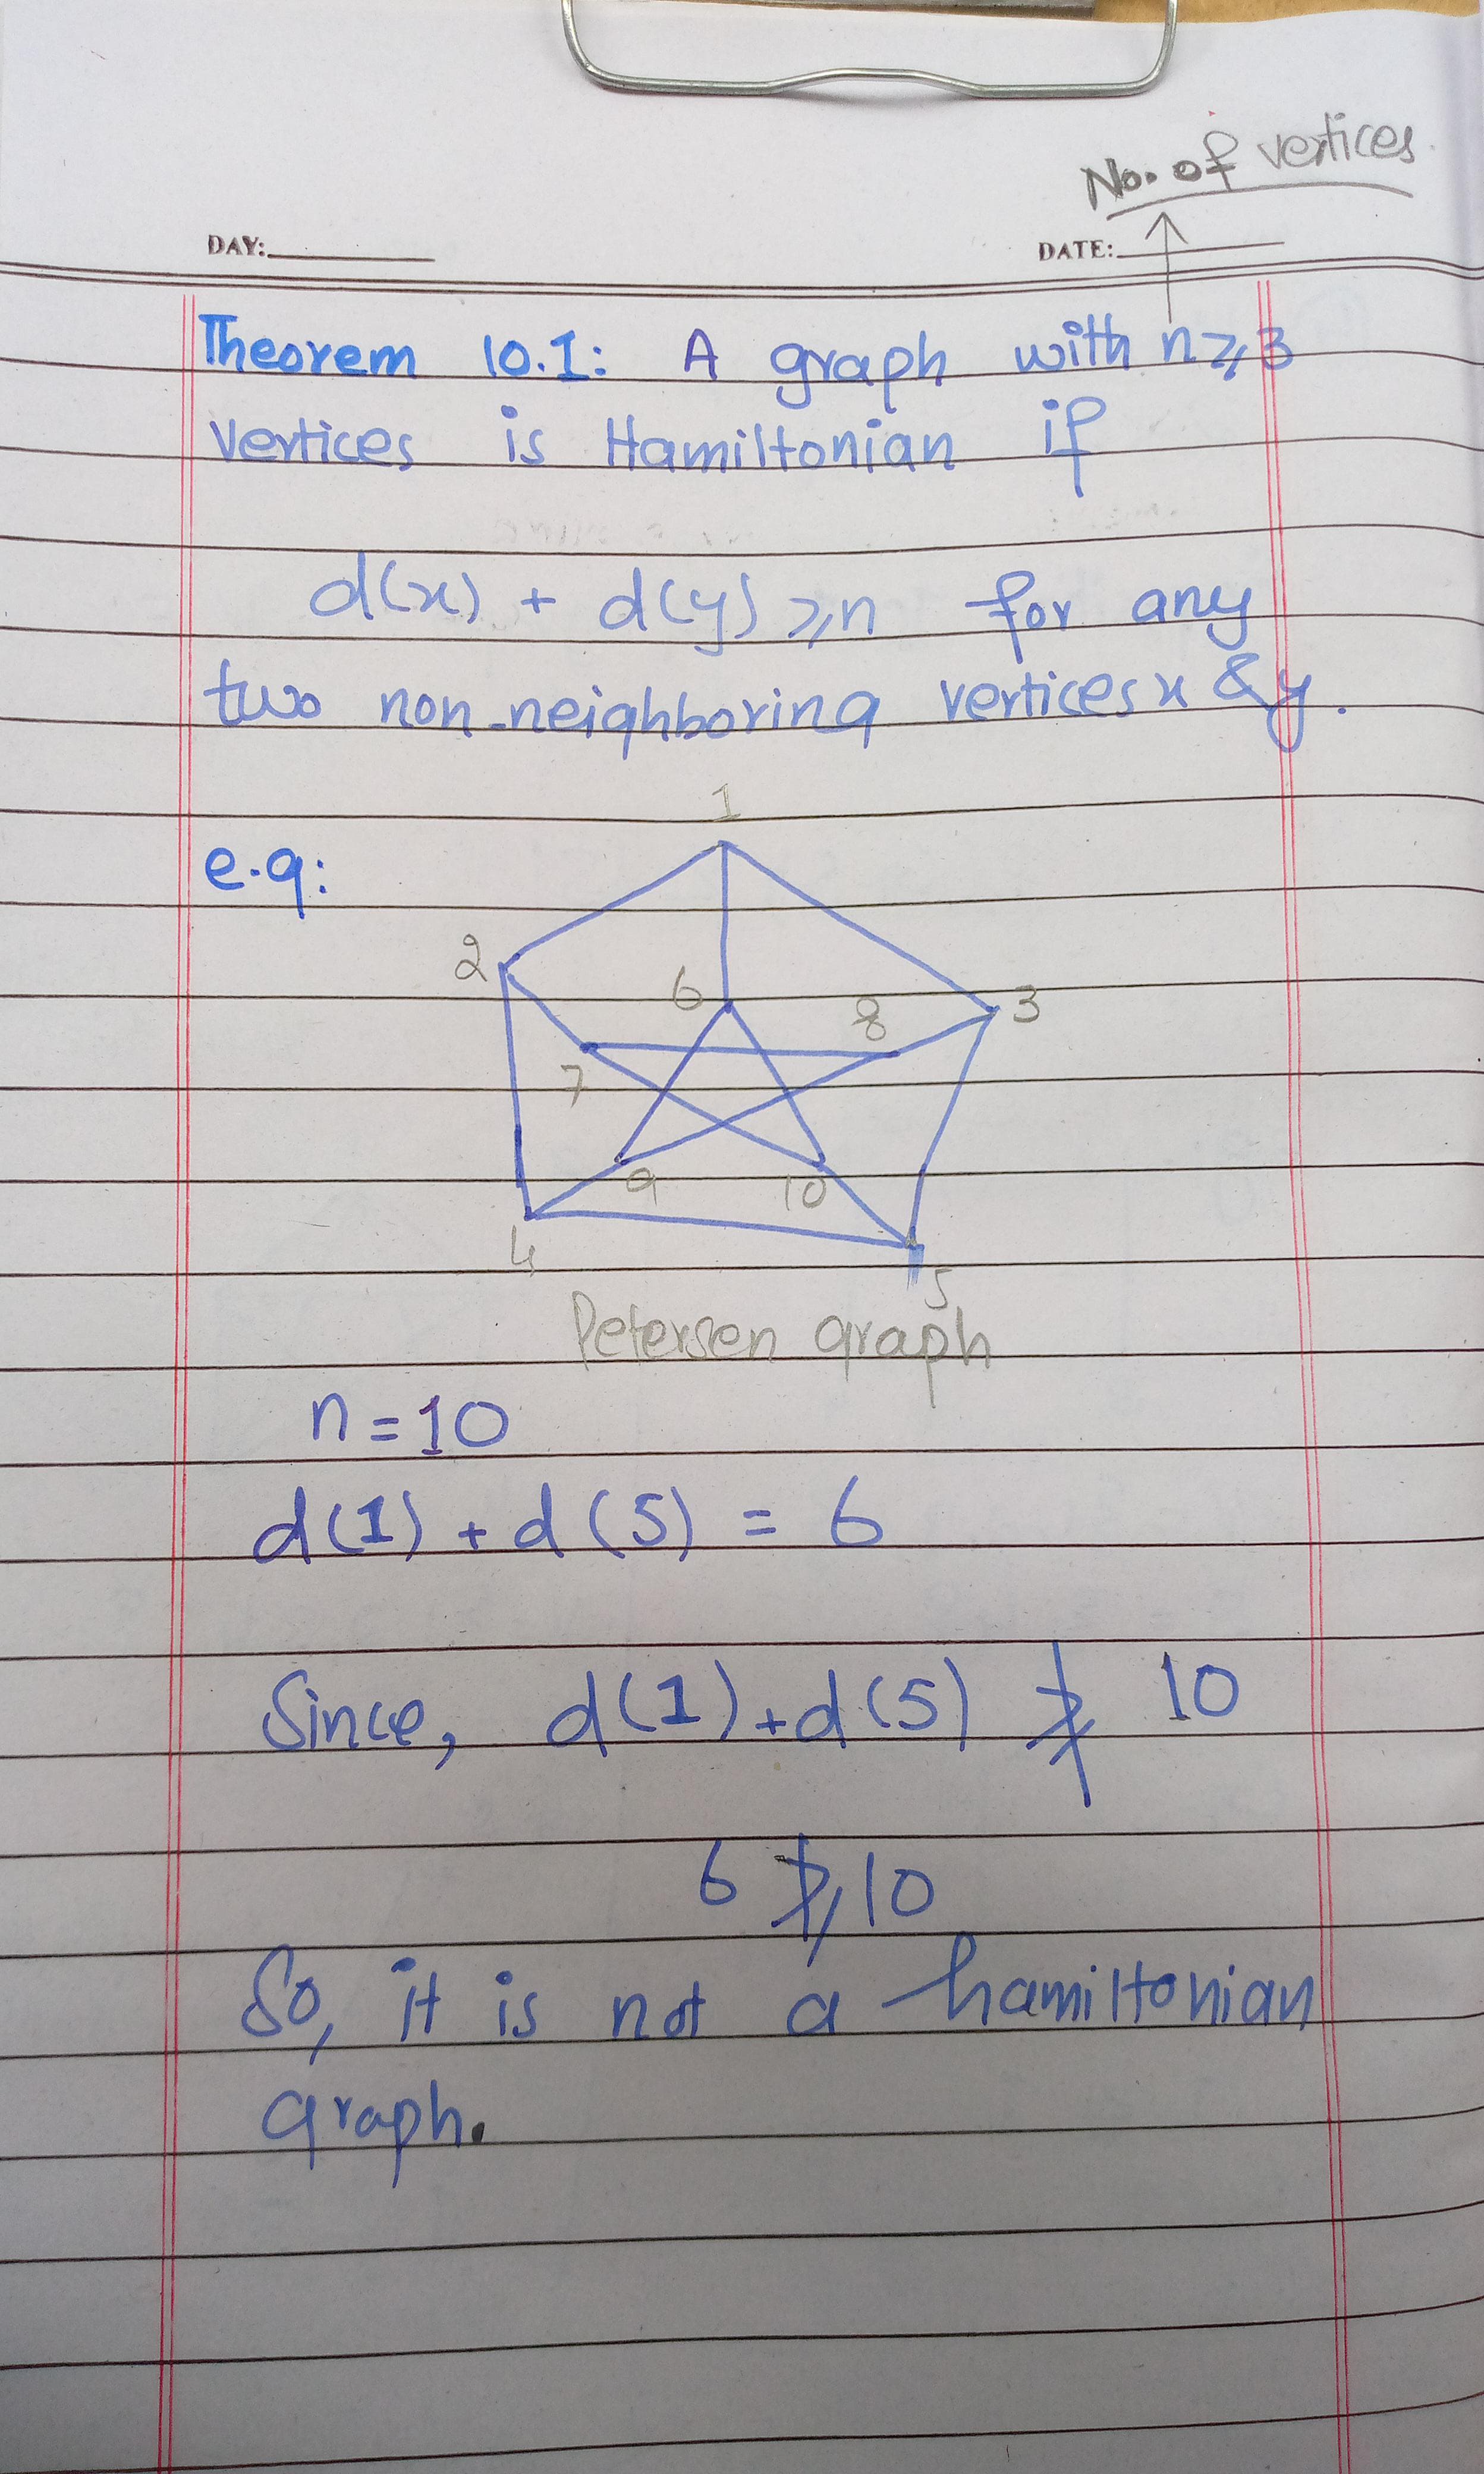 No. of vertices.
DAY:
DATE:
Theorem 10.1: A graph with n ⩾ 3
vertices is Hamiltonian if
d(x) + d(y) ⩾ n for any
two non-neighboring vertices x & y.
e.g:
1
2
6
8
3
7
9
10
4
5
Petersen graph
n = 10
d(1) + d(5) = 6
Since, d(1) + d(5) ≱ 10
6 ≱ 10
So, it is not a hamiltonian
graph.